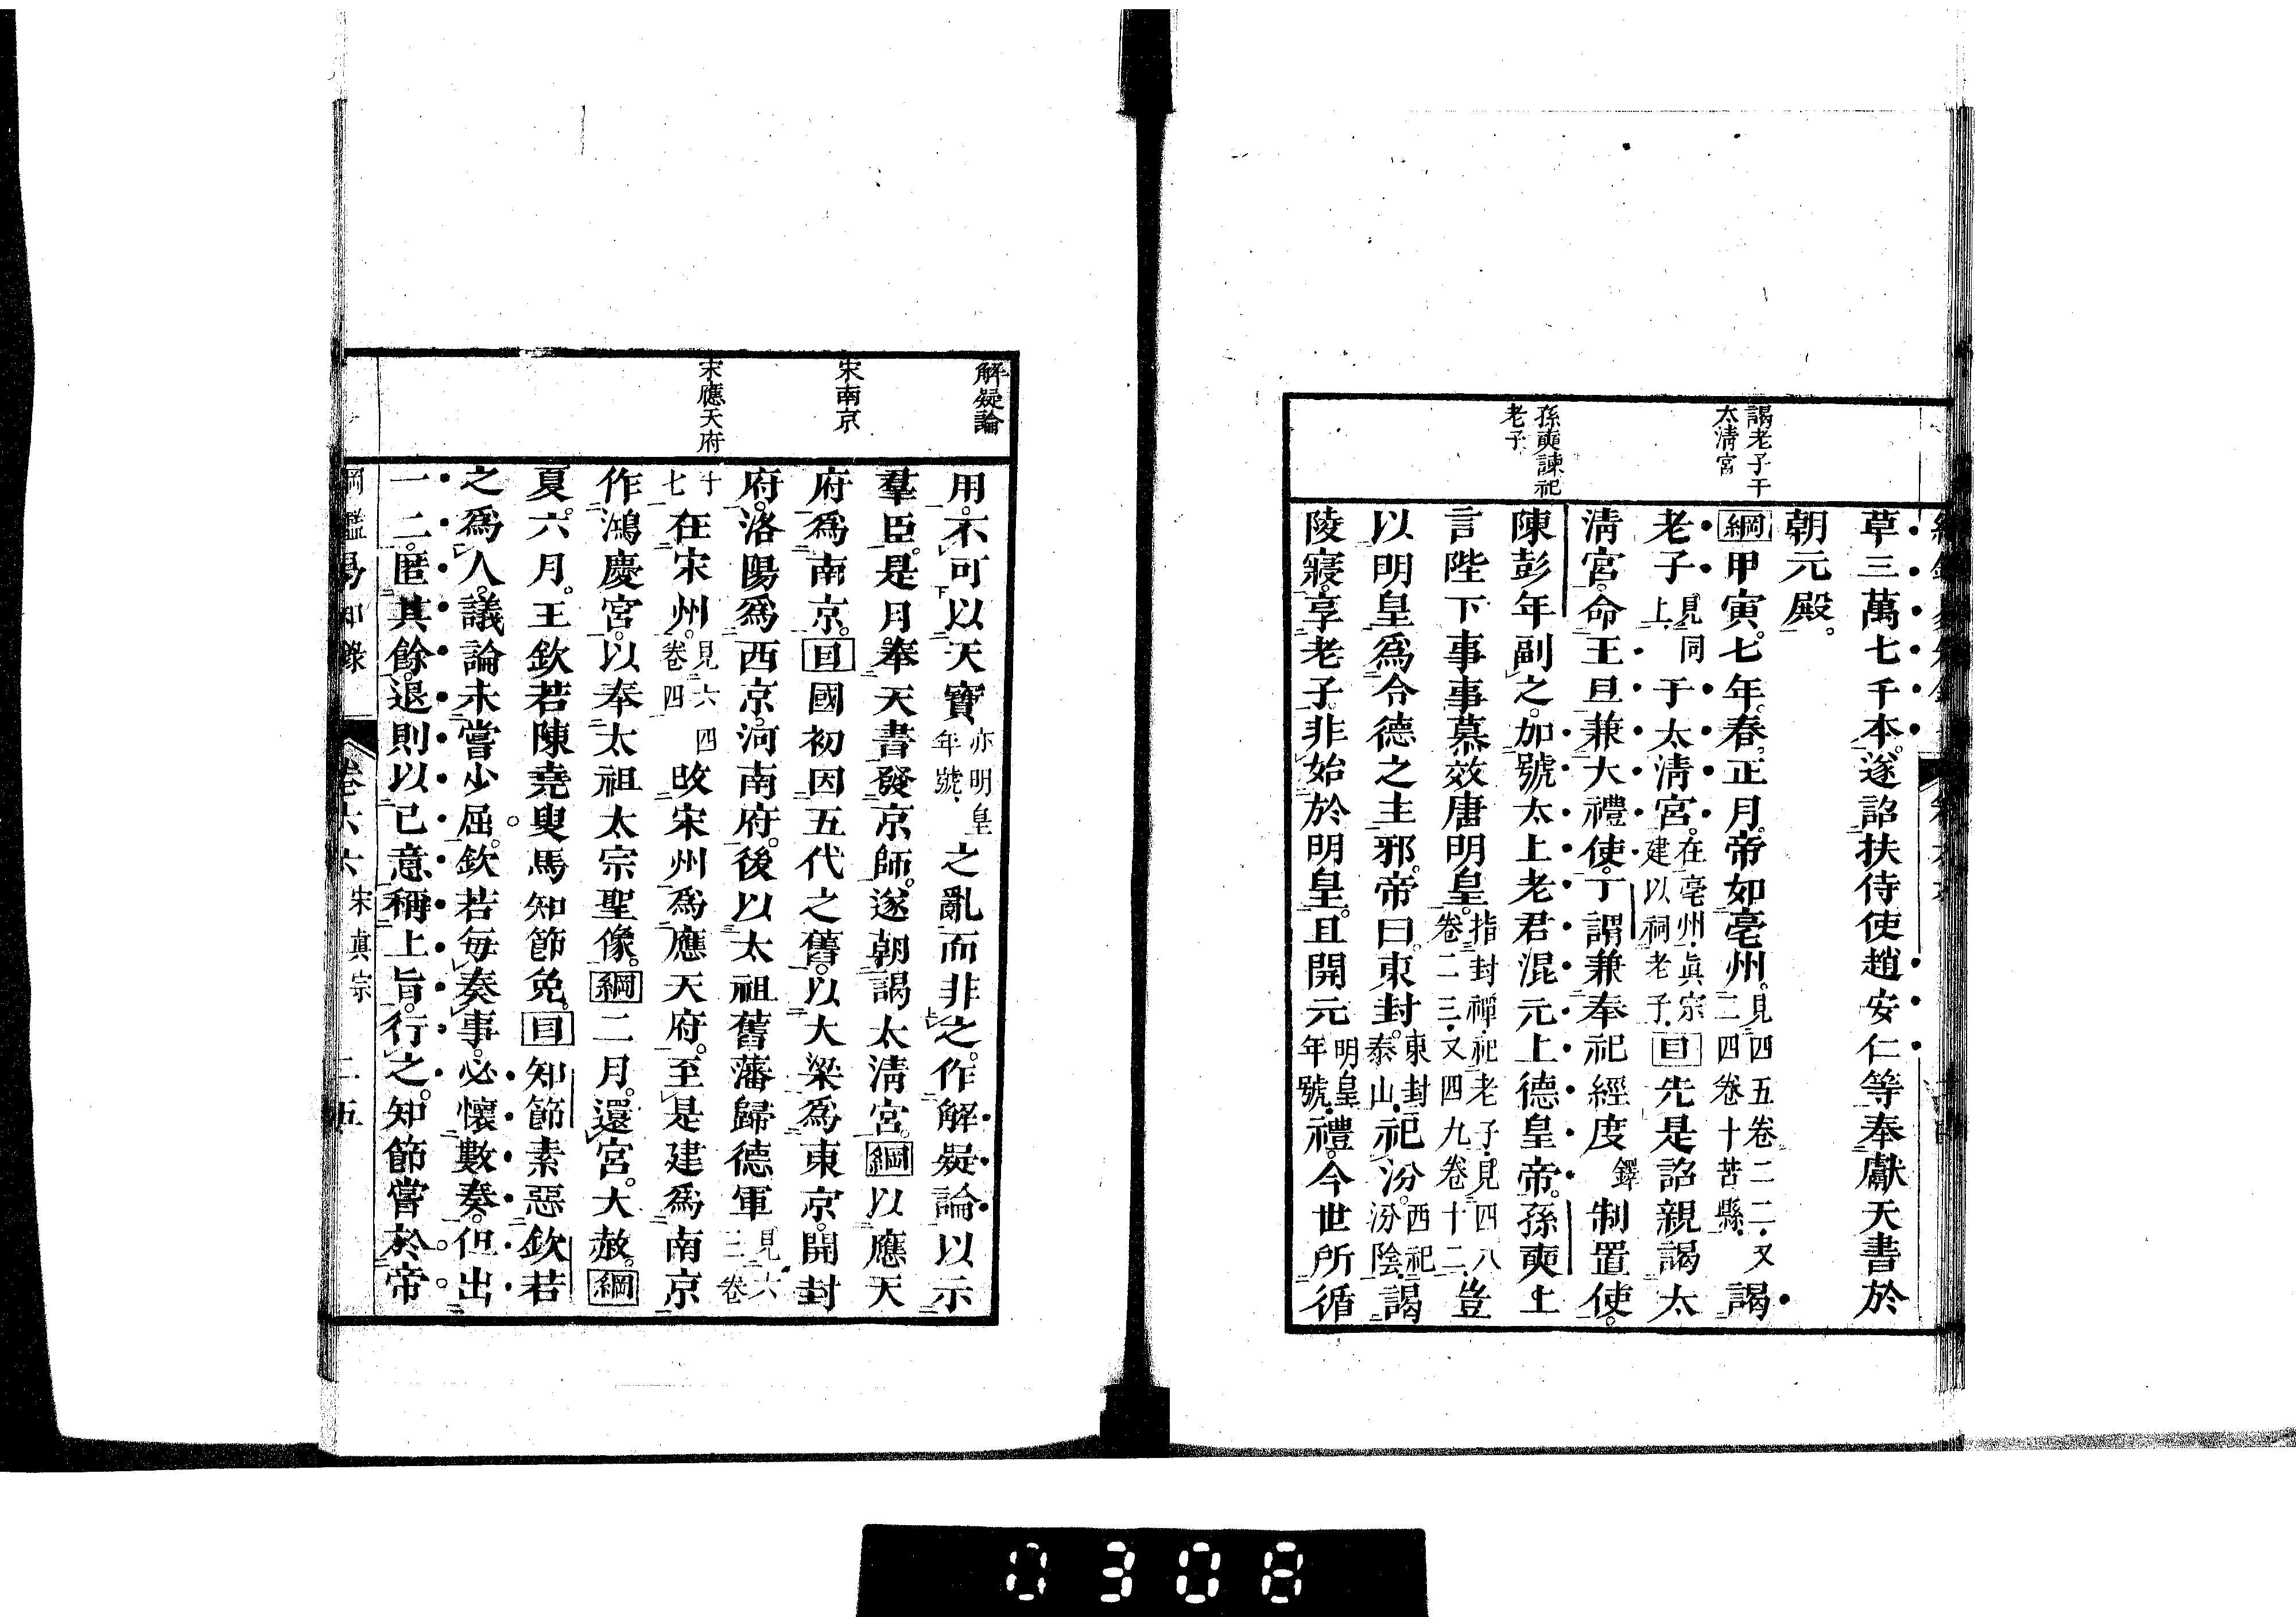 謁老子于
太清宮
孫奭諫祀
老子
草三萬七千本。遂詔扶侍使趙安仁等奉獻天書於
朝元殿。
綱甲寅。七年。春。正月。帝如亳州。見四五卷二二・又二四卷十苦縣・謁
老子見同上・于太淸宮。在亳州・眞宗建以祠老子・目先是詔親謁太
淸宮。命王旦兼大禮使。丁謂兼奉祀經度鐸制置使。
陳彭年副之。加號太上老君混元上德皇帝。孫奭上
言陛下事事慕效唐明皇。指封禪・祀老子・見四八卷二三・又四九卷十二・豈
以明皇爲令德之主邪。帝曰。東封。東封泰山・祀汾。西祀汾陰・謁
陵寢。享老子。非始於明皇。且開元明皇年號・禮。今世所循
解疑論
宋南京
宋應天府
用。不可以天寶亦明皇年號・之亂而非之。作解疑論以示
羣臣。是月。奉天書發京師。遂朝謁太淸宮。綱以應天
府爲南京。目國初因五代之舊。以大梁爲東京。開封
府。洛陽爲西京。河南府。後以太祖舊藩歸德軍見六三卷
十七在宋州。見六四卷四四改宋州爲應天府。至是建爲南京
作鴻慶宮。以奉太祖太宗聖像。綱二月。還宮。大赦。綱
夏。六月。王欽若陳堯叟馬知節免。目知節素惡欽若
之爲人。議論未嘗少屈。欽若每奏事。必懷數奏。但出
一二。匿其餘。退則以己意稱上旨。行之。知節嘗於帝
綱鑑易知錄 卷六六 宋眞宗 二五
0308